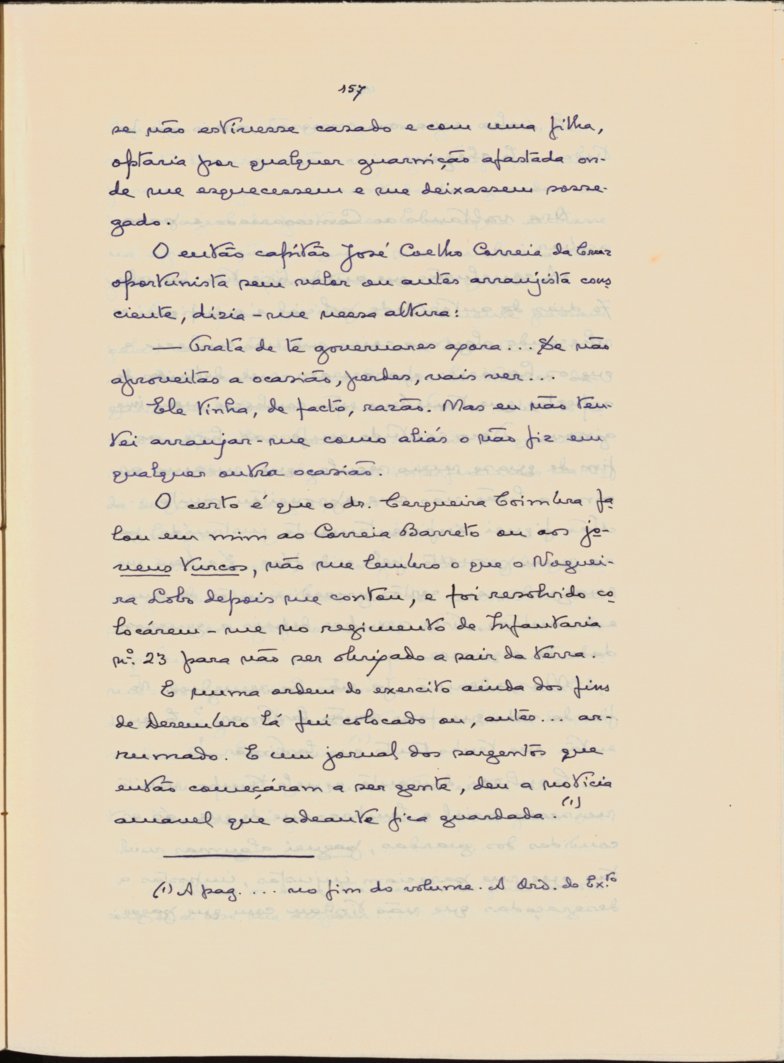 157
se não estivesse casado e com uma filha,
optaria por qualquer guarnição afastada on-
de me esquecessem e me deixassem sosse-
gado.
O então capitão José Coelho Correia da Cruz
oportunista sem valor ou antes arranjista cons
ciente, dizia-me nessa altura:
— Trata de te governares agora... Se não
aproveitas a ocasião, perdes, vais ver...
Ele tinha, de facto, razão. Mas eu não ten-
tei arranjar-me como aliás o não fiz em
qualquer outra ocasião.
O certo é que o dr. Cerqueira Coimbra fa
lou em mim ao Correia Barreto ou aos jo-
vens turcos, não me lembro o que o Noguei-
ra Lobo depois me contou, e foi resolvido co
locárem-me no regimento de Infantaria
nº. 23 para não ser obrigado a sair da terra.
E numa ordem do exercito ainda dos fins
de Dezembro lá fui colocado ou, antes... ar-
rumado. E um jornal dos sargentos que
então começáram a ser gente, deu a noticia
amavel que adeante fica guardada. (1)
(1) A pag. ... no fim do volume. A Ord. do Ex.to